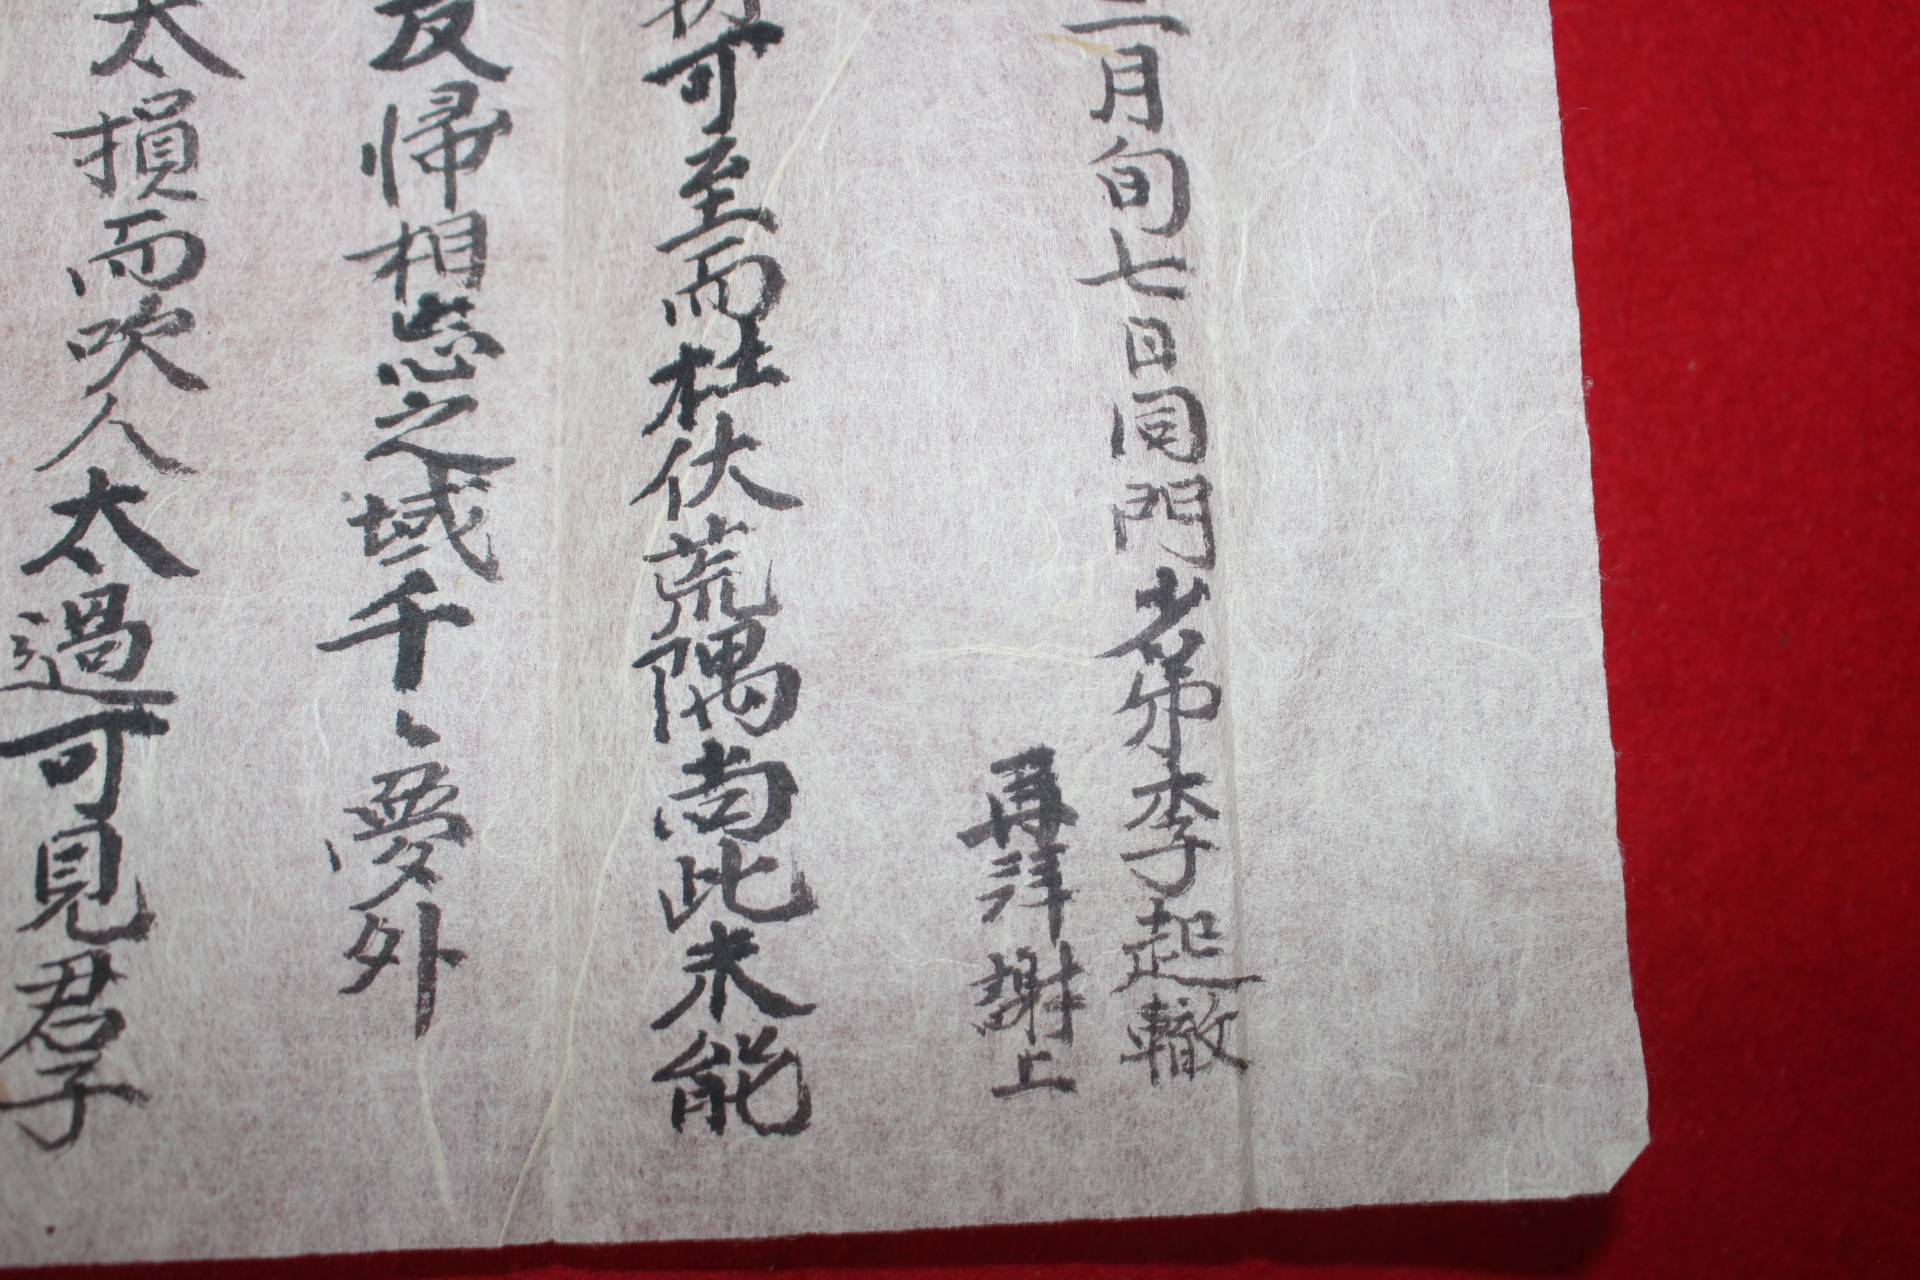 二月旬七日同門少弟李起轍
再拜謝上
可至而杜伏荒隅尚此未能
反歸相忘之域千〻夢外
太損而吹人太過可見君子